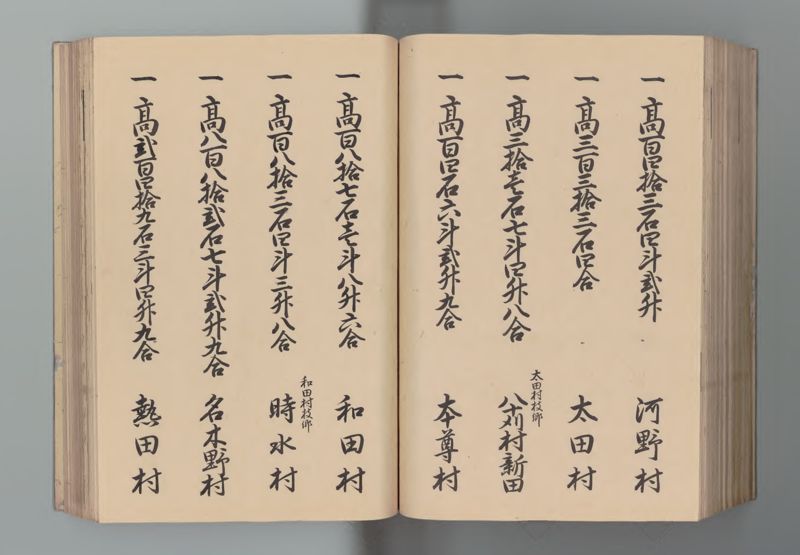 一 高百四拾三石四斗弐升 河野村
一 高三百三拾三石四合 太田村
太田村枝郷
一 高三拾壱石七斗四升八合 八十刈村新田
一 高百四石六斗弐升九合 本尊村
一 高百八拾七石壱斗八升六合 和田村
和田村枝郷
一 高百八拾三石四斗三升八合 時水村
一 高八百八拾弐石七斗弐升九合 名木野村
一 高弐百四拾九石三斗四升九合 熱田村